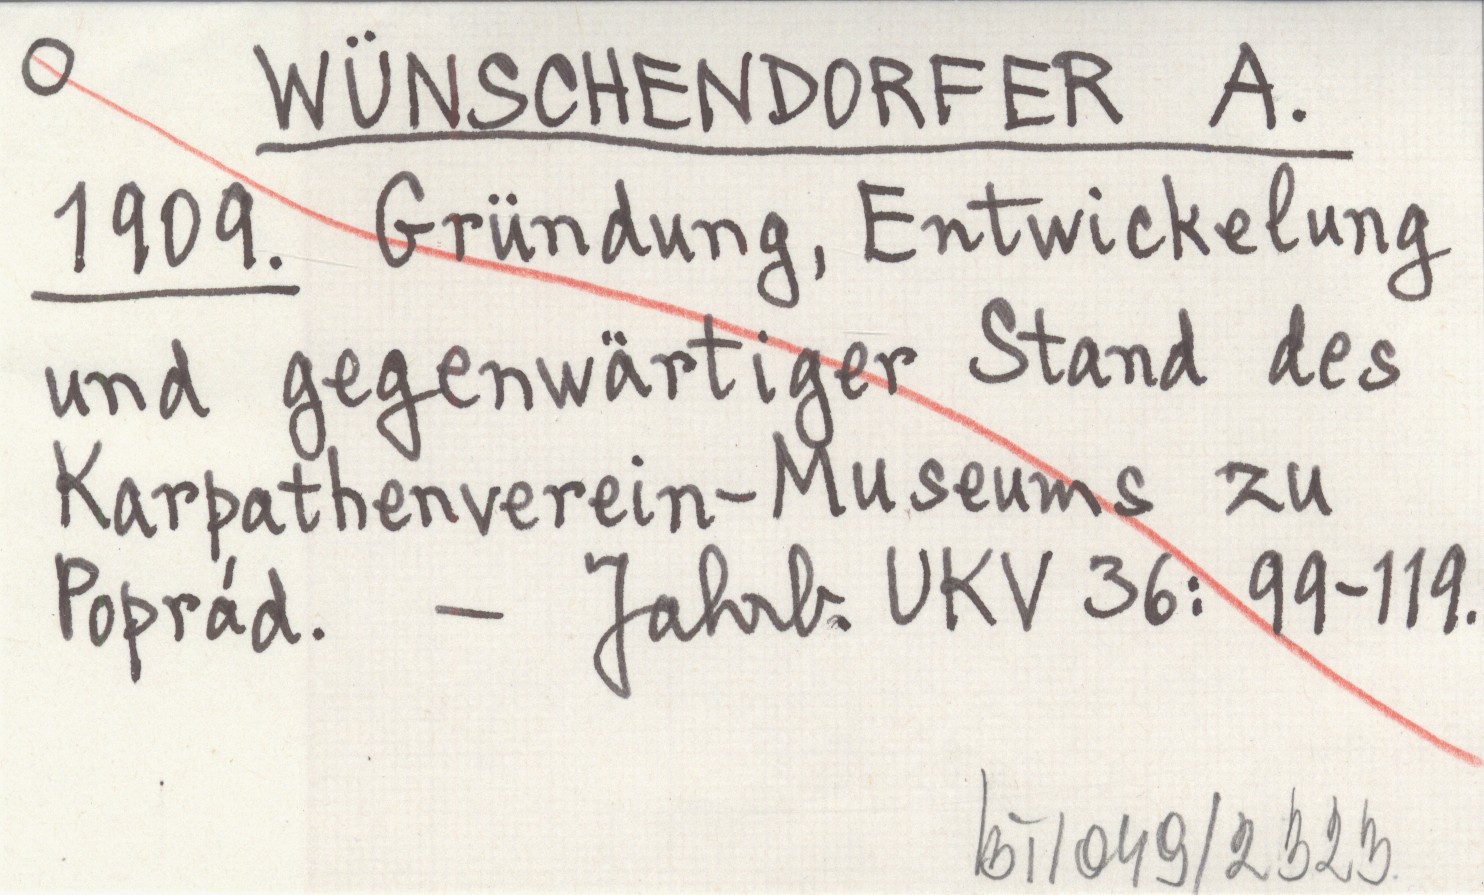 O WÜNSCHENDORFER A.
1909. Gründung, Entwickelung
und gegenwärtiger Stand des
Karpathenverein-Museums zu
Poprád. – Jahrb. UKV 36: 99-119.